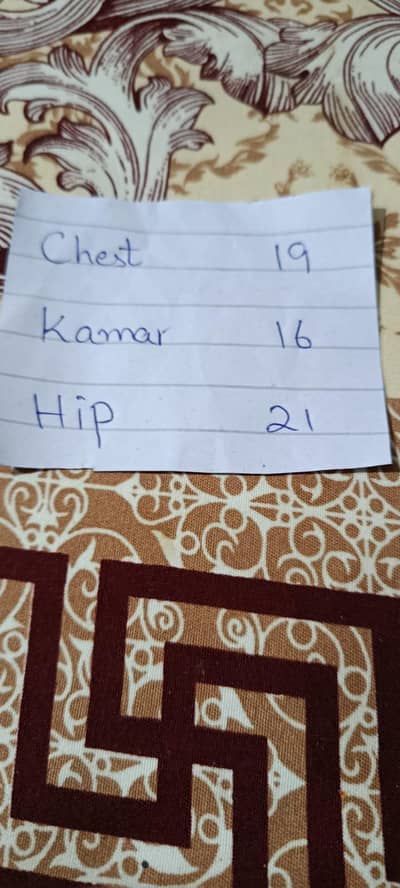 Chest 19
Kamar 16
Hip 21